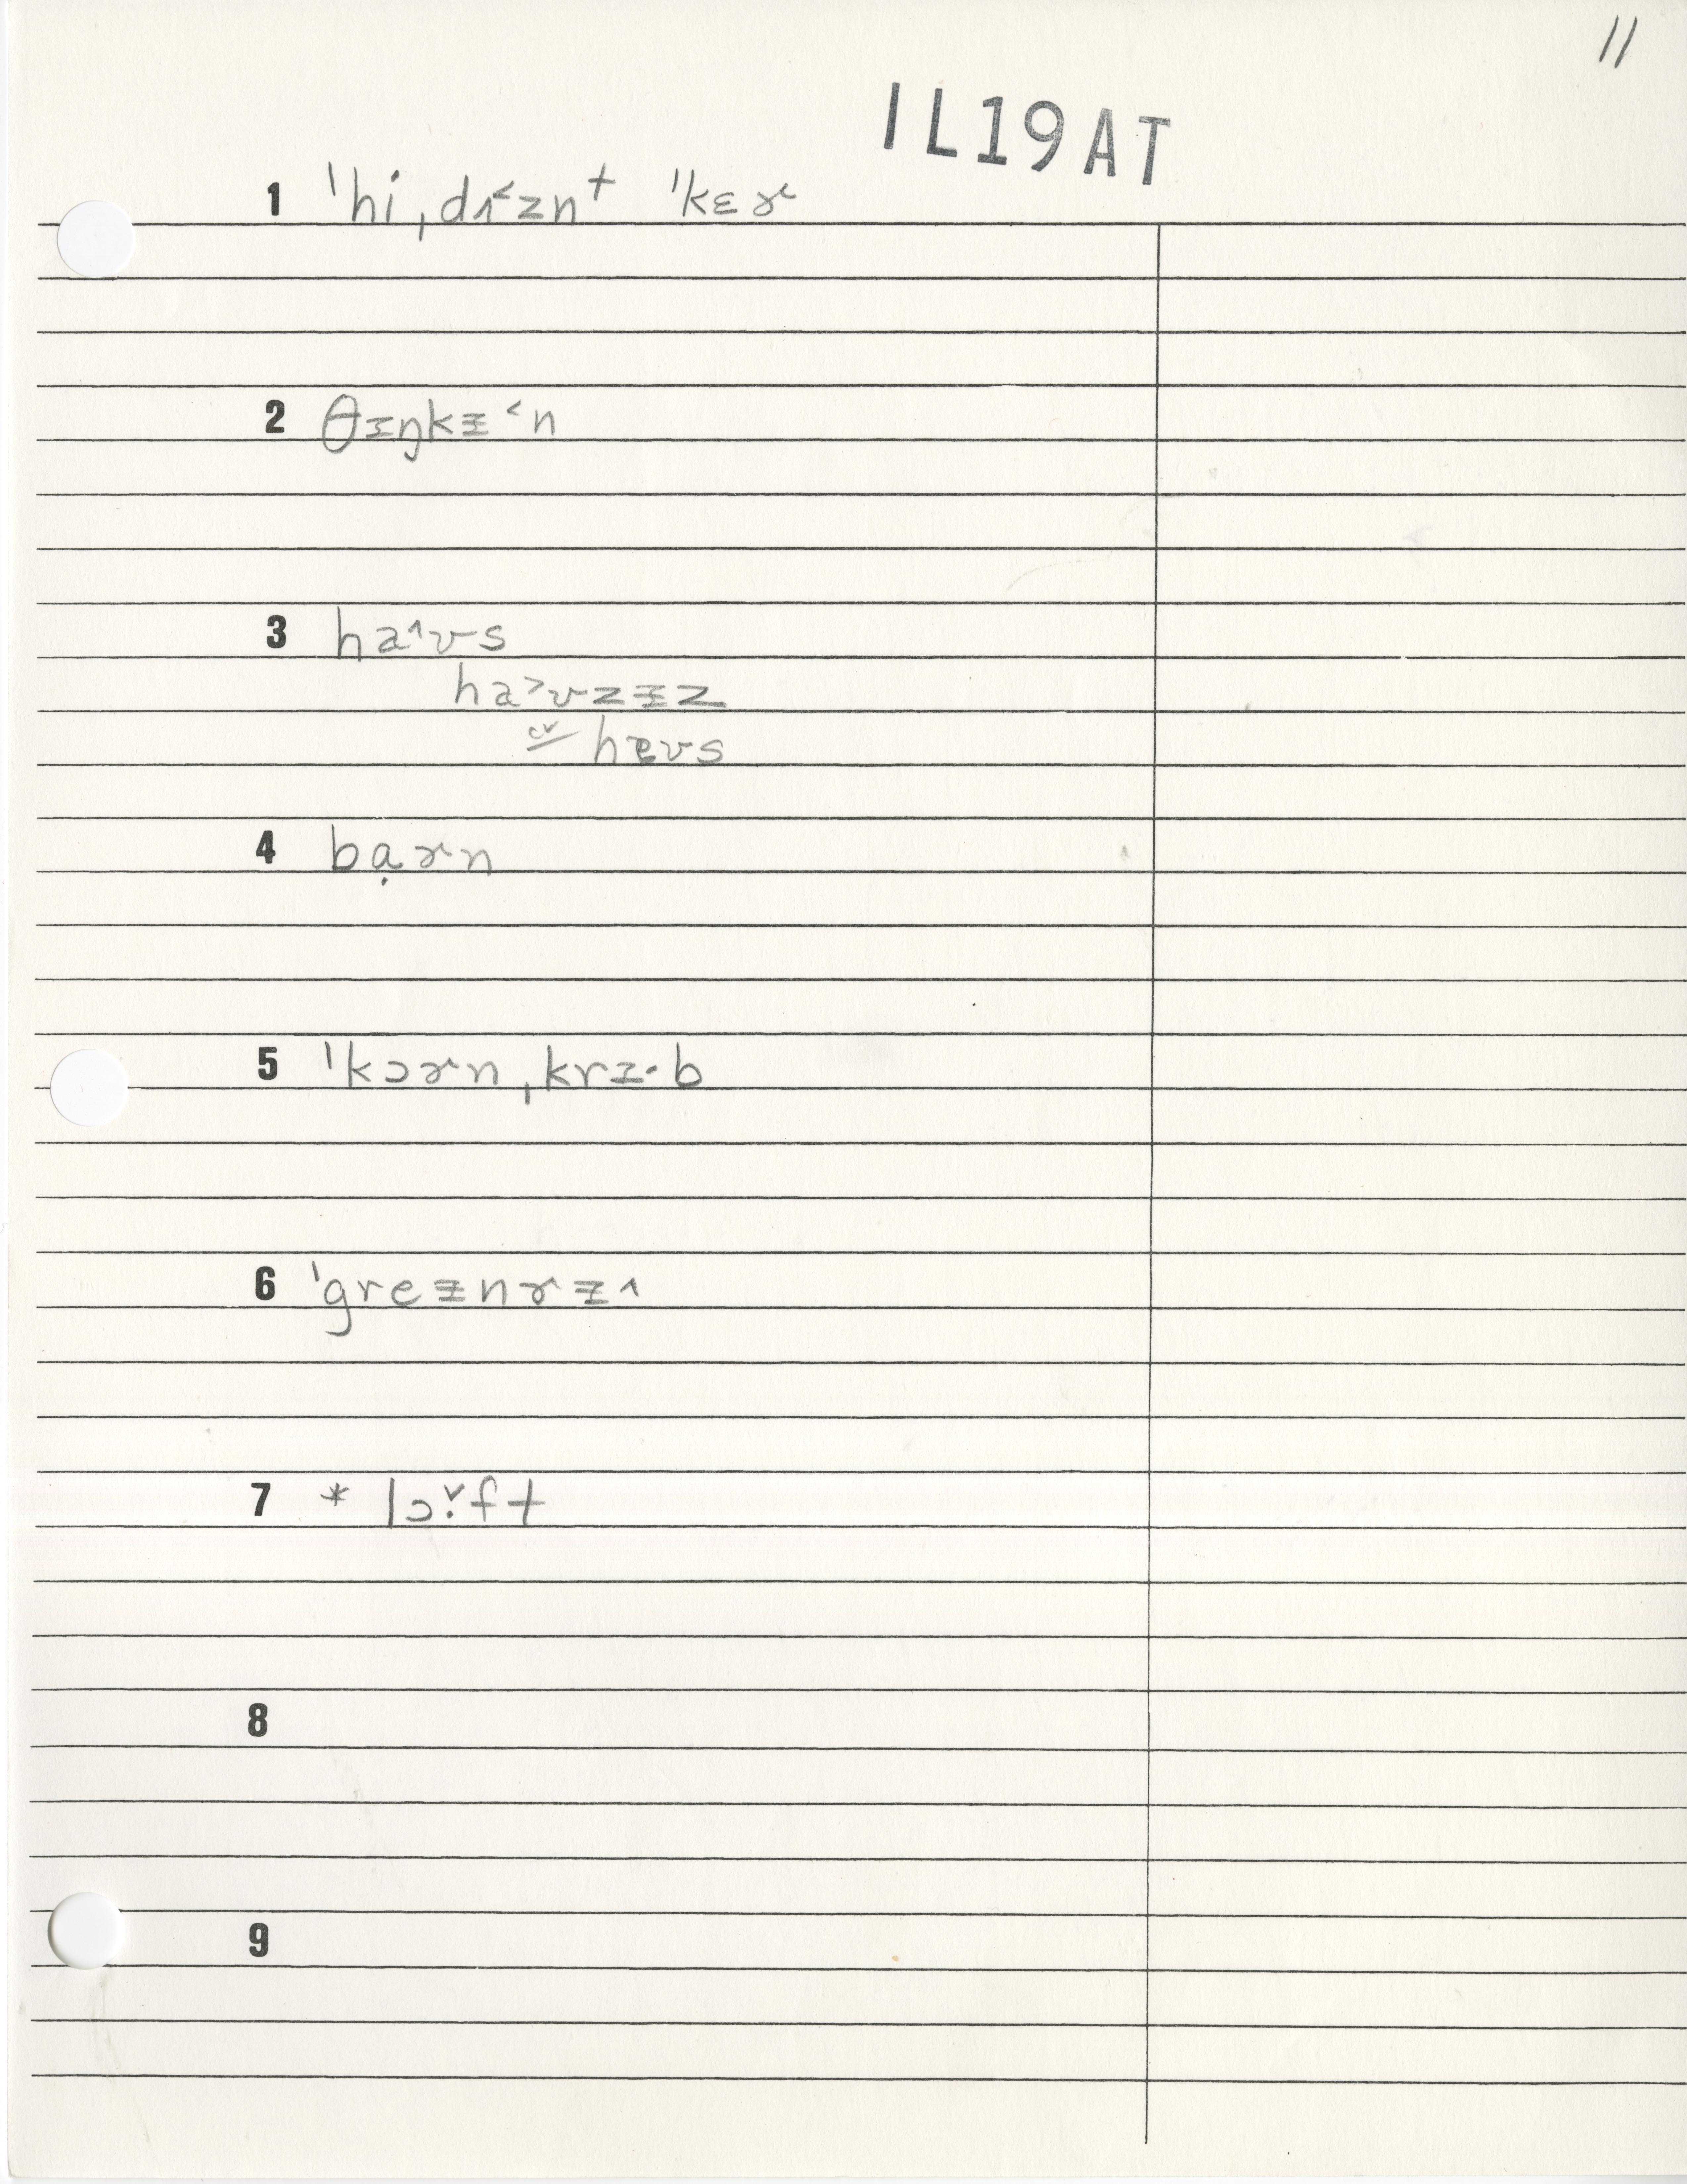 11
IL19AT
1 ˈhi ˌdɤ˂znᵗ ˈˈkɛɚ
2 θɪŋkɪ̵˂n
3 ha˄ʊs
ha˃ʊzɪ̵z
cv hɐʊs
4 bạɚn
5 ˈkɔɚn ˌkrɪ·b
6 ˈgreɪ̵nɚɪ̵˄
7 * lɔ̣˅ft
8
9